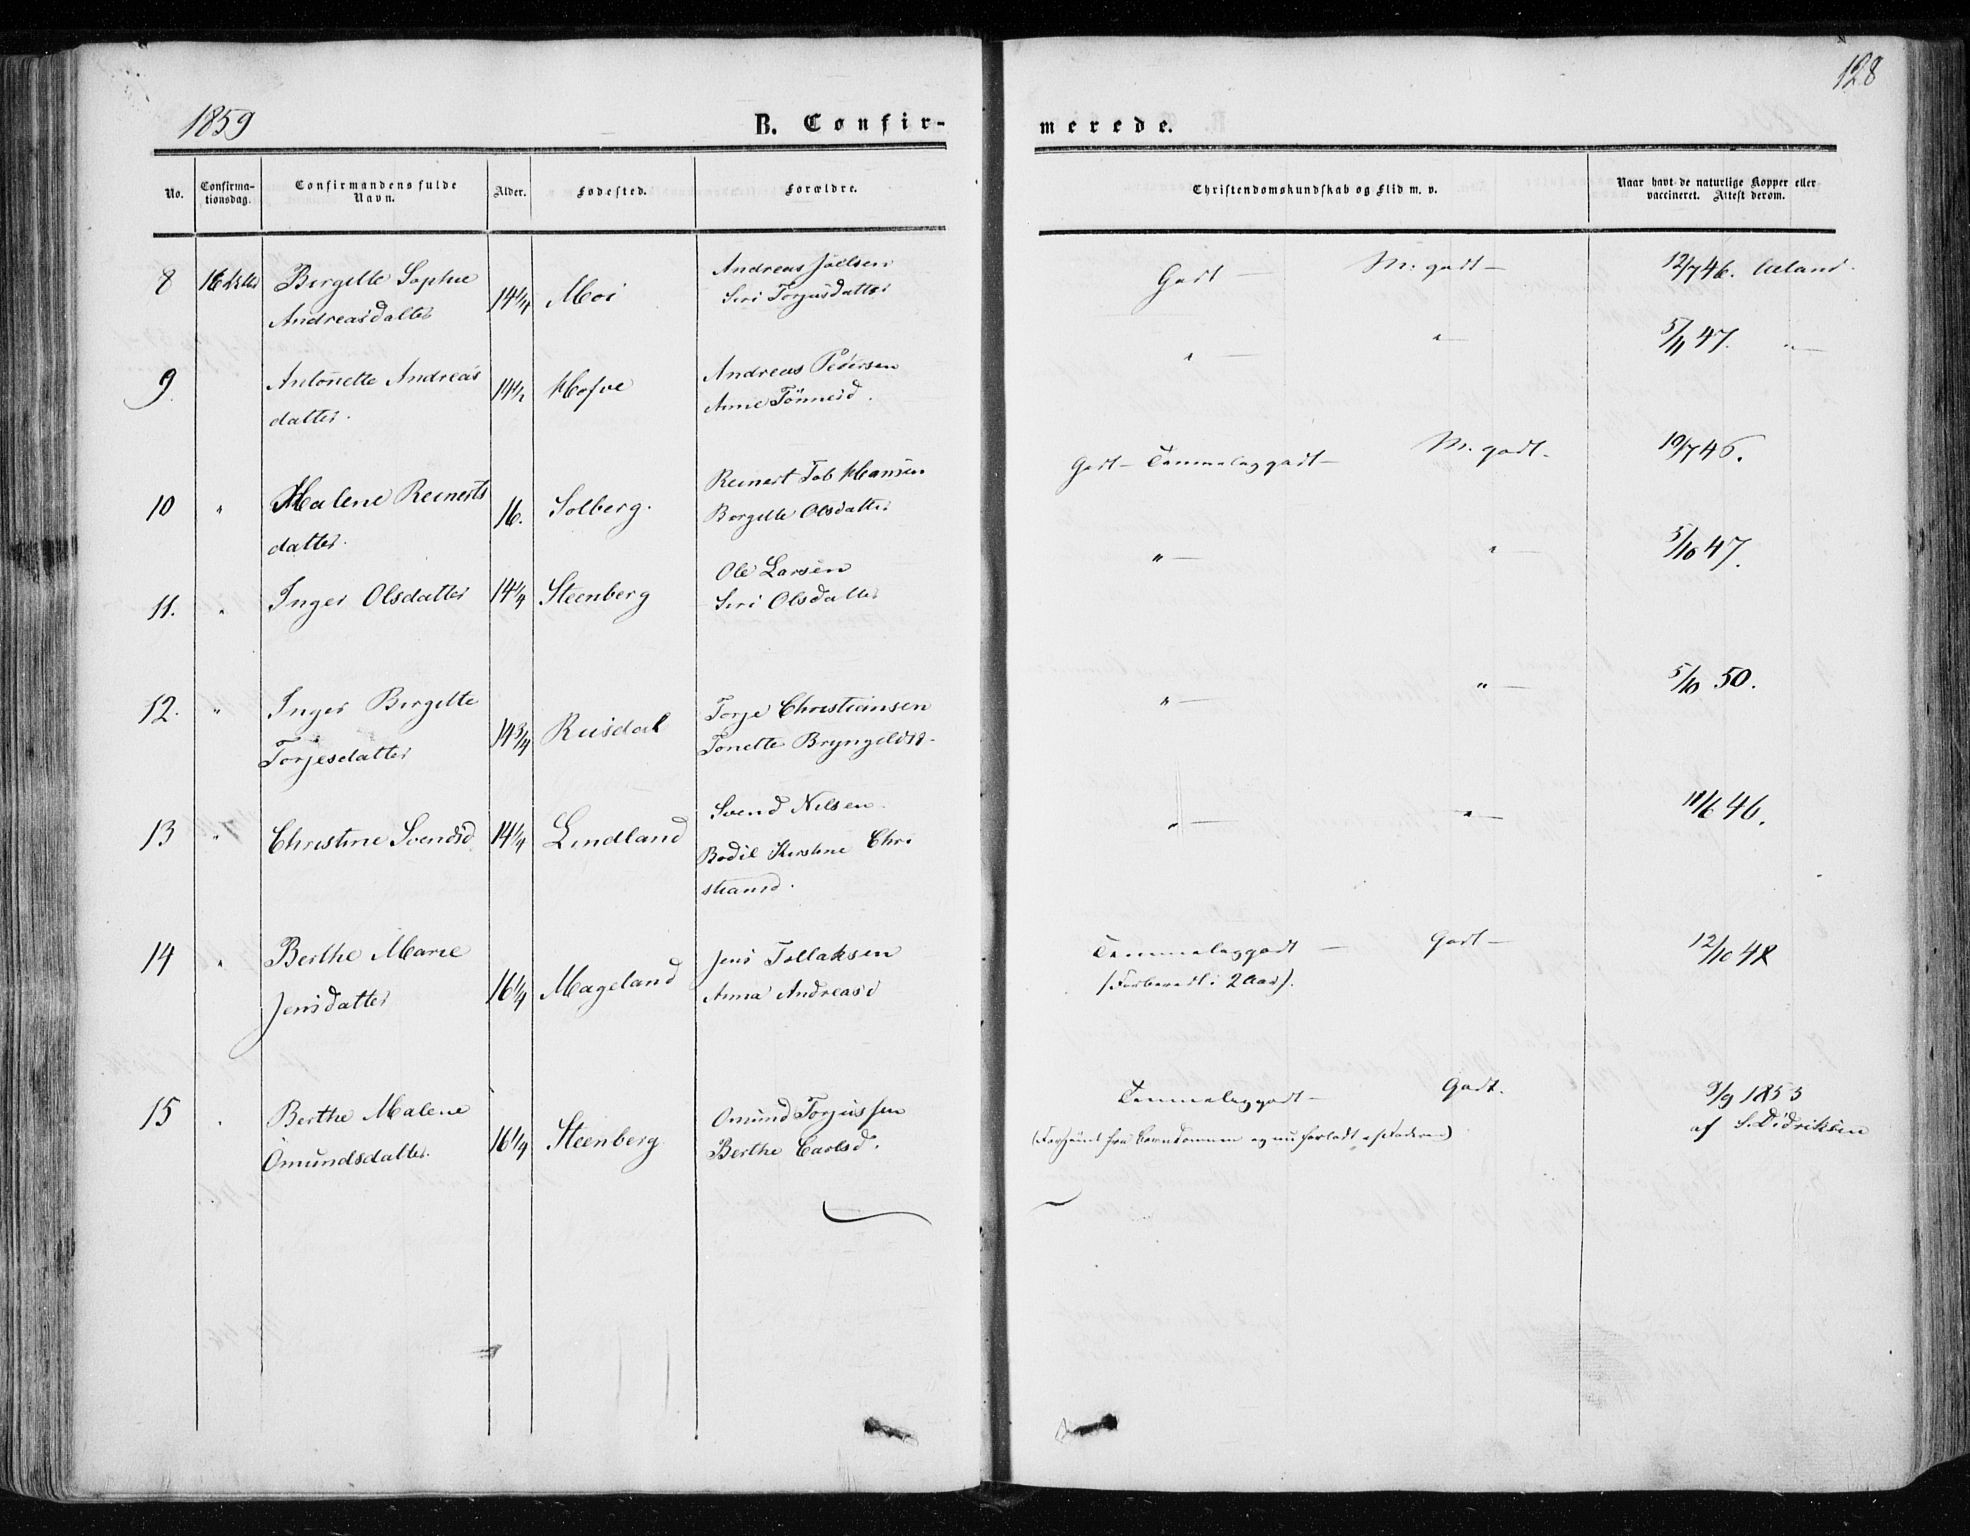 1859
B. Confir-
merede.
128
No.
Confirma-
tionsdag.
Confirmandens fulde
Navn.
Alder.
Fødested.
Forældre.
Christendomskundskab og Flid m. v.
Naar havt de naturlige Kopper eller
vaccineret. Attest derom.
8 16 Birgitte Sophie
Andreasdatter 14 1/4 Moi
Andreas Joelsen
Siri Torjusdatter
Godt — M. godt — 12/7 46. Aaland.
9 Antonette Andreas
datter. 14 1/2 Hofve
Andreas Pedersen
Anne Tønnesd.
" — " — 5/11 47. " —
10 " Malene Reinerts
datter. 16. Solberg.
Reinert Tob Hansen
Børgitte Olsdatter
Godt — Temmelig godt — M. godt. 10/7 46.
11. " Inger Olsdatter 14 1/4 Steenberg
Ole Larsen
Siri Olsdatter
" — " — 5/10 47.
12. " Inger Birgitte
Torjesdatter 14 3/4 Reisdal
Torje Christiansen
Tonette Bryngeldsd.
" — " — 5/10 50.
13 " Christine Svendsd 14 1/4 Lindland
Svend Nilsen.
Bodil Kirstine Chri
stiansd.
" — " — 11/6 46.
14 " Berthe Marie
Jensdatter 16 1/4 Mageland
Jens Tollaksen
Anna Andreasd
Temmelig godt — Godt — 12/10 48
(Forberedt i 2 Aar).
15 " Berthe Malene
Omundsdatter. 16 1/4 Steenberg
Omund Torjussen
Berthe Carlsd.
Temmelig godt — Godt. 9/9 1853
af S. Didriksen
(Forsømt fra Barndommen og nu forladt af Faderen)